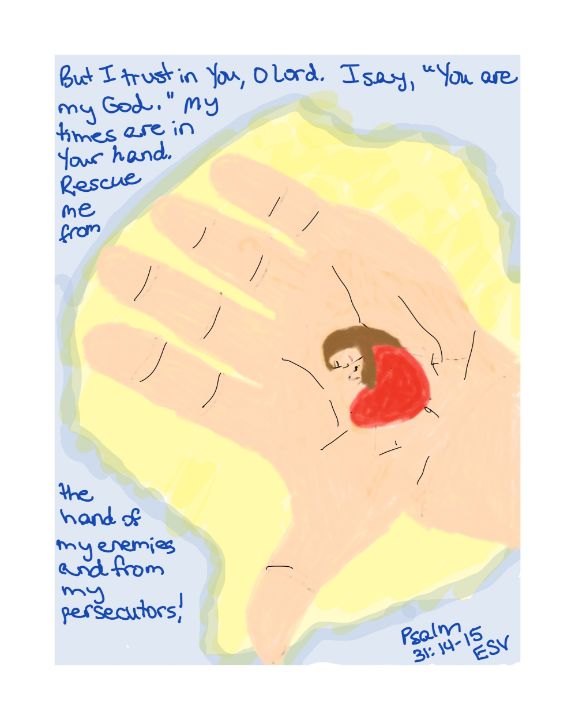 But I trust in You, O Lord. I say, "You are
my God." My
times are in
Your hand.
Rescue
me
from
the
hand of
my enemies
and from
my
persecutors!
Psalm
31:14-15
ESV